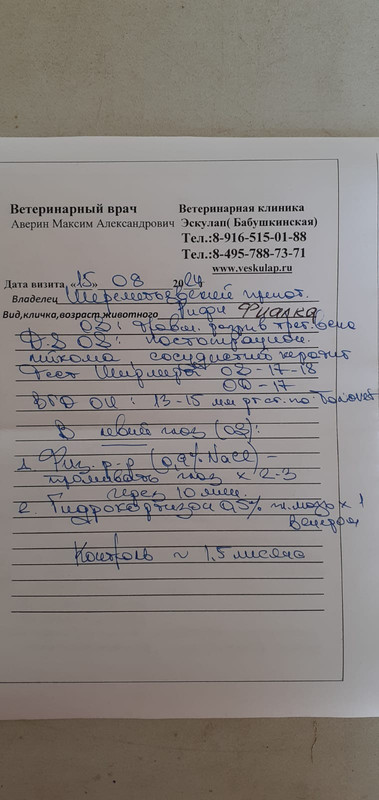 Ветеринарный врач Ветеринарная клиника
Аверин Максим Александрович Эскулап( Бабушкинская)
Тел.:8-916-515-01-88
Тел.:8-495-788-73-71
www.veskulap.ru
Дата визита «15» 08 2024
Владелец приют.
Вид,кличка,возраст животного Фиалка
OS:
D.S OS:
сосудистый кератит
Тест Ширмера OS-17-18
OD-17
ВГД OU: 13-15 мм рт.ст. по Tonovet
В левый глаз (OS):
1. Физ. р-р (0,9% NaCl) –
промывать глаз x 2-3
через 10 мин.
2. Гидрокортизон 0,5% гл.мазь x 1
вечером
Контроль ~ 1,5 месяца